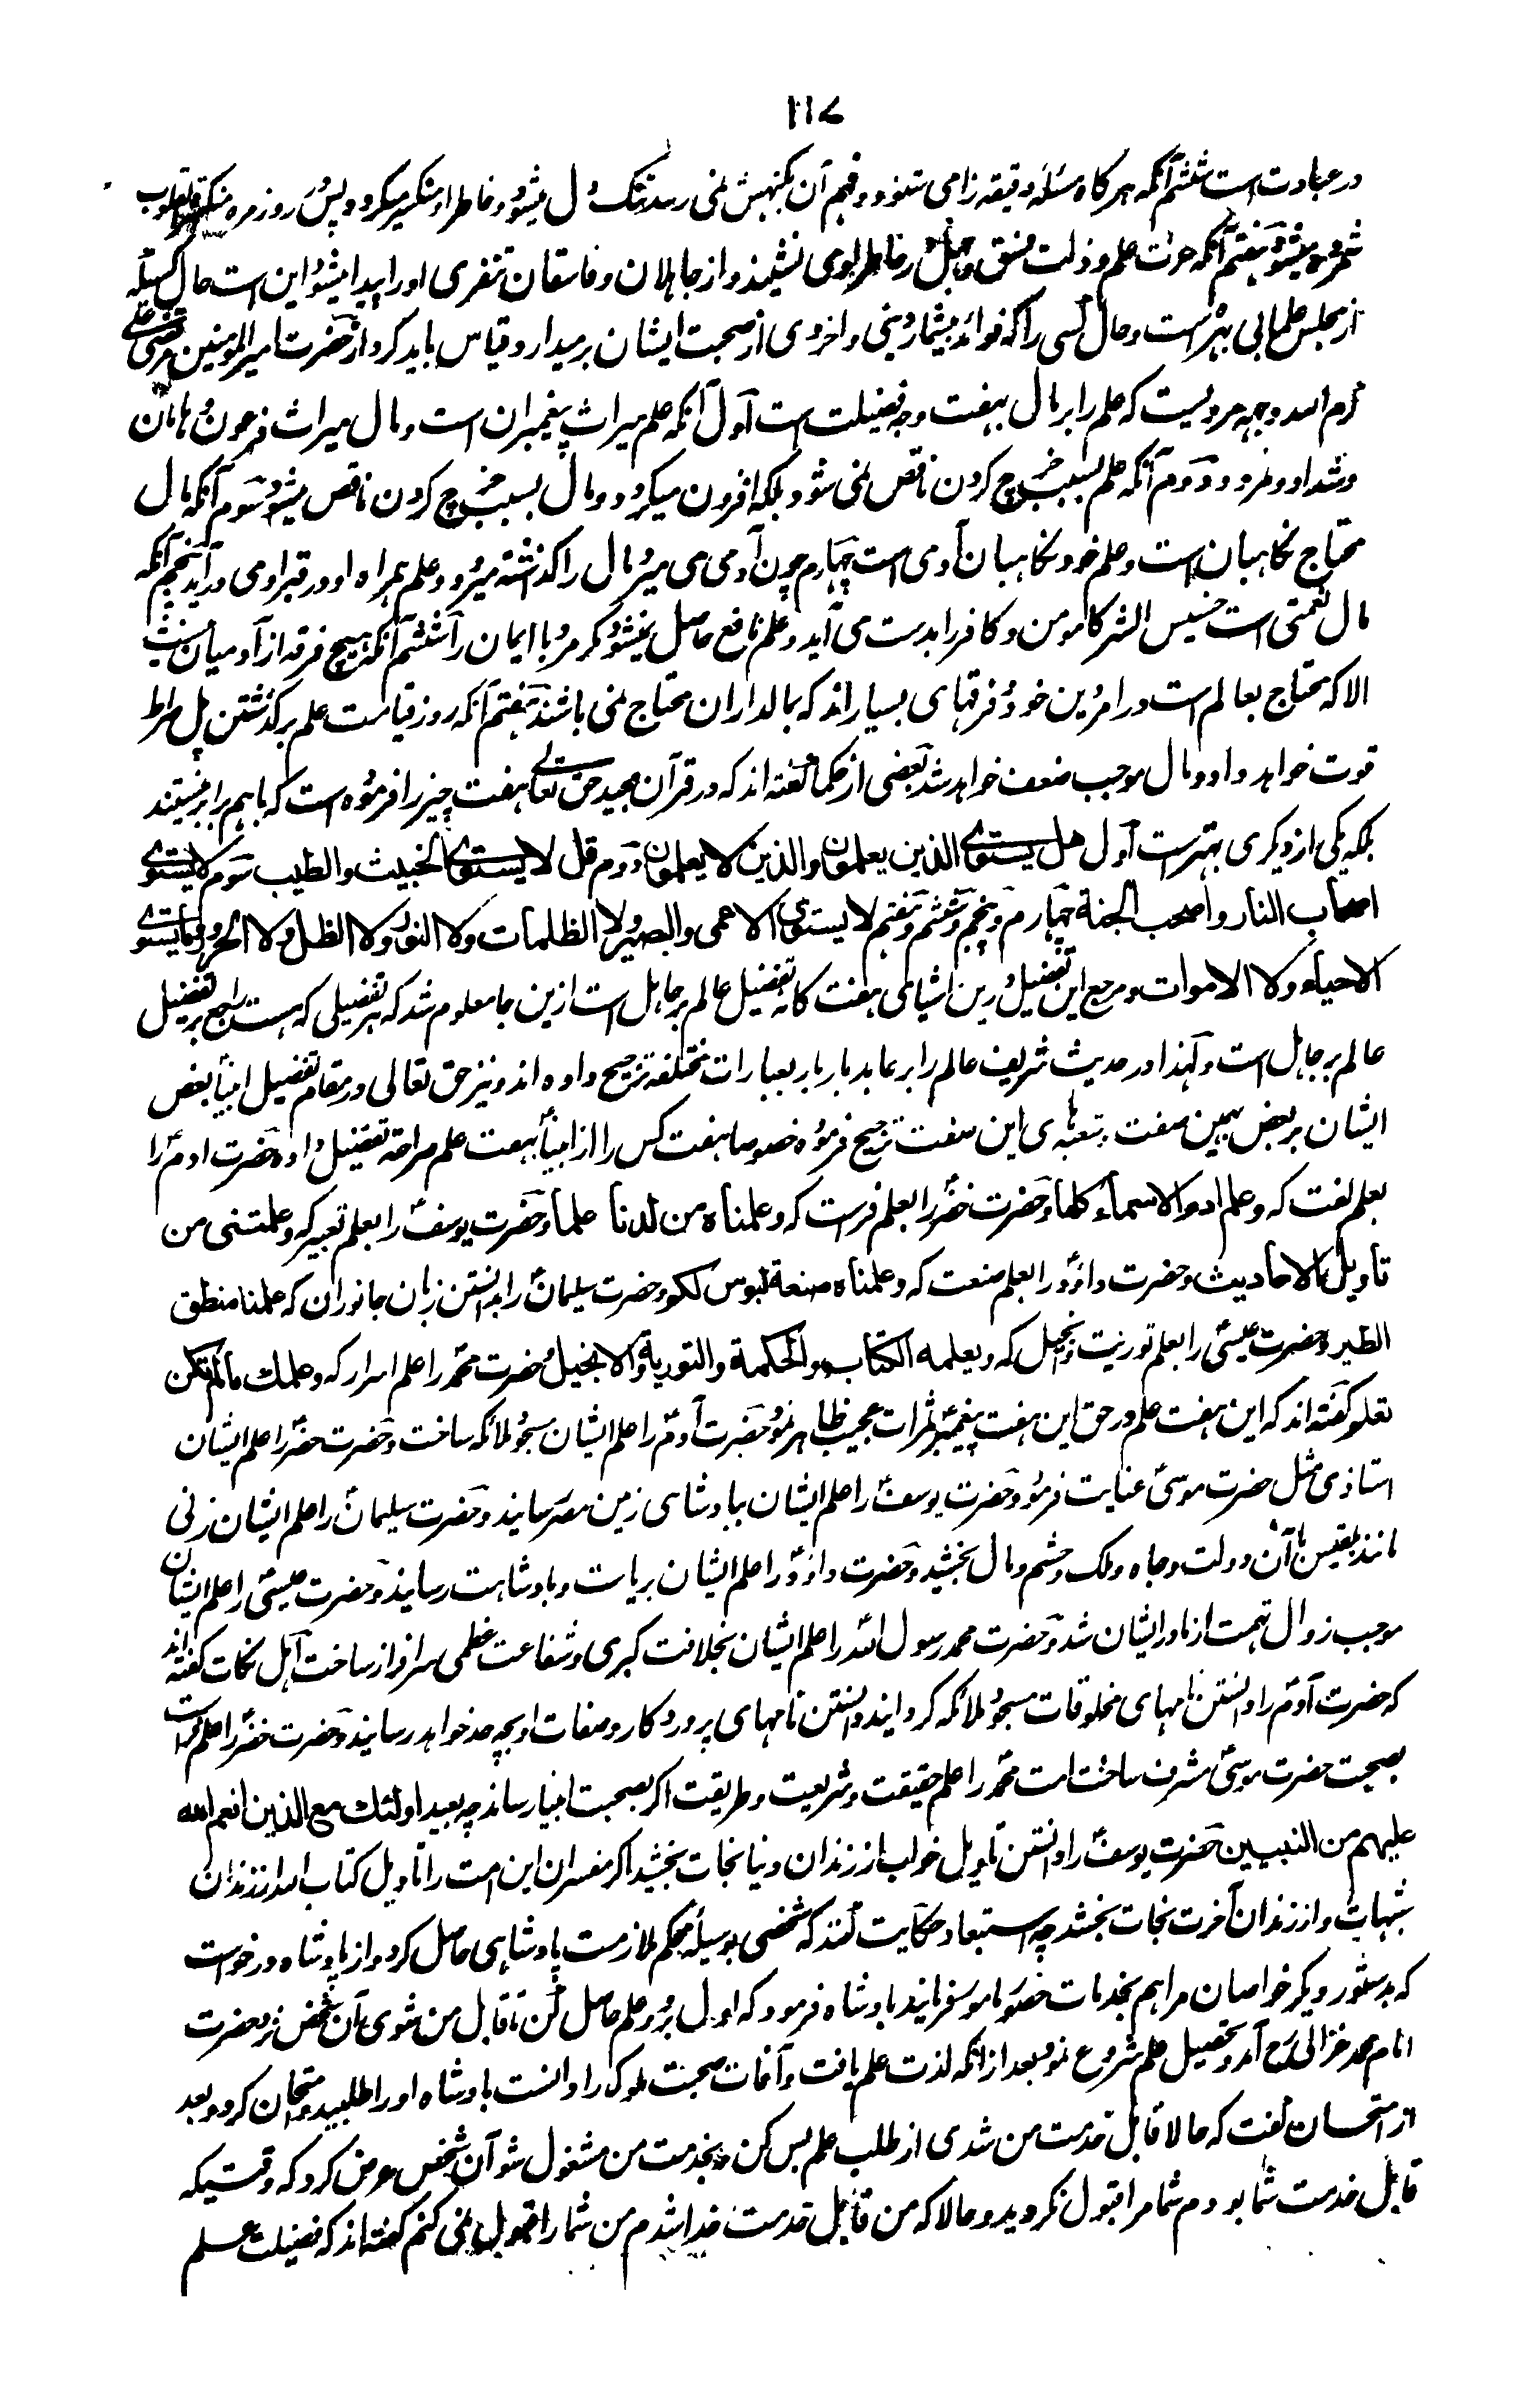 ۱۱۷
در عبادت است ششم آنکه هر گاه مسئله دقیقه را می شنود و فهم آن بکنهش نمی رسد تنگدل میشود و خاطر او منکسر میگردد پس در زمره منکسر القلوب
شمرده میشود هفتم آنکه عزت علم و ذلت فسق و جهل در خاطر او می نشیند و از جاهلان و فاسقان تنفری او را پیدا میشود این است حال کسیکه
از مجلس علما بی بهره است و حال کسی را که فوائد بیشمار دینی و اخروی از صحبت ایشان بر میدارد قیاس باید کرد و از حضرت امیر المومنین مرتضی علی
کرم الله وجهه مرویست که علم را بر مال بهفت وجه فضیلت است اول آنکه علم میراث پیغمبران است و مال میراث فرعون و هامان
و شداد و نمرود دوم آنکه علم بسبب خرچ کردن ناقص نمی شود بلکه افزون میگردد و مال بسبب خرچ کردن ناقص میشود سوم آنکه مال
محتاج نگاهبان است و علم خود نگاهبان آدمی است چهارم چون آدمی می میرد مال را گذاشته میرود و علم همراه او در قبر او می در آید پنجم آنکه
مال نعمتی است خسیس الشرکا مومن و کافر را بدست می آید و علم نافع حاصل نمیشود مگر مرد با ایمان را ششم آنکه هیچ فرقه از آدمیان نیست
الا که محتاج بعالم است در امر دین خود و فرقهای بسیار اند که بمالداران محتاج نمی باشند هفتم آنکه روز قیامت علم بر گذشتن پل صراط
قوت خواهد داد و مال موجب ضعف خواهد شد بعضی از حکما گفته اند که در قرآن مجید حق تعالی هفت چیز را فرموده است که باهم برابر نیستند
بلکه یکی از دیگری بهتر است اول هل یستوی الذین یعلمون والذین لا یعلمون دوم قل لا یستوی الخبیث والطیب سوم لا یستوی
اصحاب النار واصحب الجنة چهارم و پنجم و ششم و هفتم لا یستوی الاعمی والبصیر ولا الظلمات ولا النور ولا الظل ولا الحرور وما یستوی
الاحیاء ولا الاموات و مرجع این تفضیل درین اشیای هفت گانه تفضیل عالم بر جاهل است ازین جا معلوم شد که هر تفضیلی که هست راجع بتفضیل
عالم بر جاهل است و لهذا در حدیث شریف عالم را بر عابد بار بار بعبارات مختلفه ترجیح داده اند و نیز حق تعالی در مقام تفضیل انبیا بعض
ایشان بر بعض بهمین صفت و شعبهای این صفت ترجیح فرموده خصوصا هفت کس را از انبیا بهفت علم صراحة تفضیل داده حضرت آدم را
بعلم لغت که وعلم ادم الاسماء کلها و حضرت خضر را بعلم فراست که وعلمناه من لدنا علما و حضرت یوسف را بعلم تعبیر که وعلمتنی من
تأویل الاحادیث و حضرت داؤد را بعلم صنعت که وعلمناه صنعة لبوس لکم و حضرت سلیمان را بدانستن زبان جانوران که علمنا منطق
الطیر و حضرت عیسی را بعلم توریت و انجیل که ویعلمه الکتاب والحکمة والتوریة والانجیل و حضرت محمد را علم اسرار که وعلمک ما لم تکن
تعلم و گفته اند که این هفت علم در حق این هفت پیغمبر ثمرات عجیب ظاهر نمود حضرت آدم را علم ایشان مسجود ملائکه ساخت و حضرت خضر را علم ایشان
استاذی مثل حضرت موسی عنایت فرمود و حضرت یوسف را علم ایشان ببادشاهی زمین مصر رسانید و حضرت سلیمان را علم ایشان زنی
مانند بلقیس با آن دولت و جاه و ملک و حشم و مال بخشید و حضرت داؤد را علم ایشان بریاست و بادشاهت رسانید و حضرت عیسی را علم ایشان
موجب زوال تهمت از مادر ایشان شد و حضرت محمد رسول الله را علم ایشان بخلافت کبری و شفاعت عظمی سرافراز ساخت اهل نکات گفته اند
که حضرت آدم را دانستن نامهای مخلوقات مسجود ملائکه گردانید دانستن نامهای پروردگار و صفات او بچه حد خواهد رسانید و حضرت خضر را علم فراست
بصحبت حضرت موسی مشرف ساخت امت محمد را علم حقیقت و شریعت و طریقت اگر بصحبت انبیا رساند چه بعید اولئک مع الذین انعم الله
علیهم من النبیین حضرت یوسف را دانستن تأویل خواب از زندان دنیا نجات بخشید اگر مفسران این امت را تاویل کتاب الله از زندان
شبهات و از زندان آخرت نجات بخشد چه استبعاد حکایت کنند که شخصی بوسیله محکم ملازمت پادشاهی حاصل کرد و از پادشاه درخواست
که بدستور دیگر خواصان مرا هم بخدمات حضور مامور فرمایند بادشاه فرمود که اول برو علم حاصل کن تا قابل من شوی آن شخص نزد حضرت
امام محمد غزالی رح آمد و تحصیل علم شروع نمود بعد از انکه لذت علم یافت و آفات صحبت ملوک را دانست بادشاه او را طلبید و امتحان کرد و بعد
از امتحان گفت که حالا قابل خدمت من شدی از طلب علم بس کن و بخدمت من مشغول شو آن شخص عرض کرد که وقتیکه
قابل خدمت شما بودم شما مرا قبول نکردید و حالا که من قابل خدمت خدا شدم من شما را قبول نمی کنم گفته اند که فضیلت علم